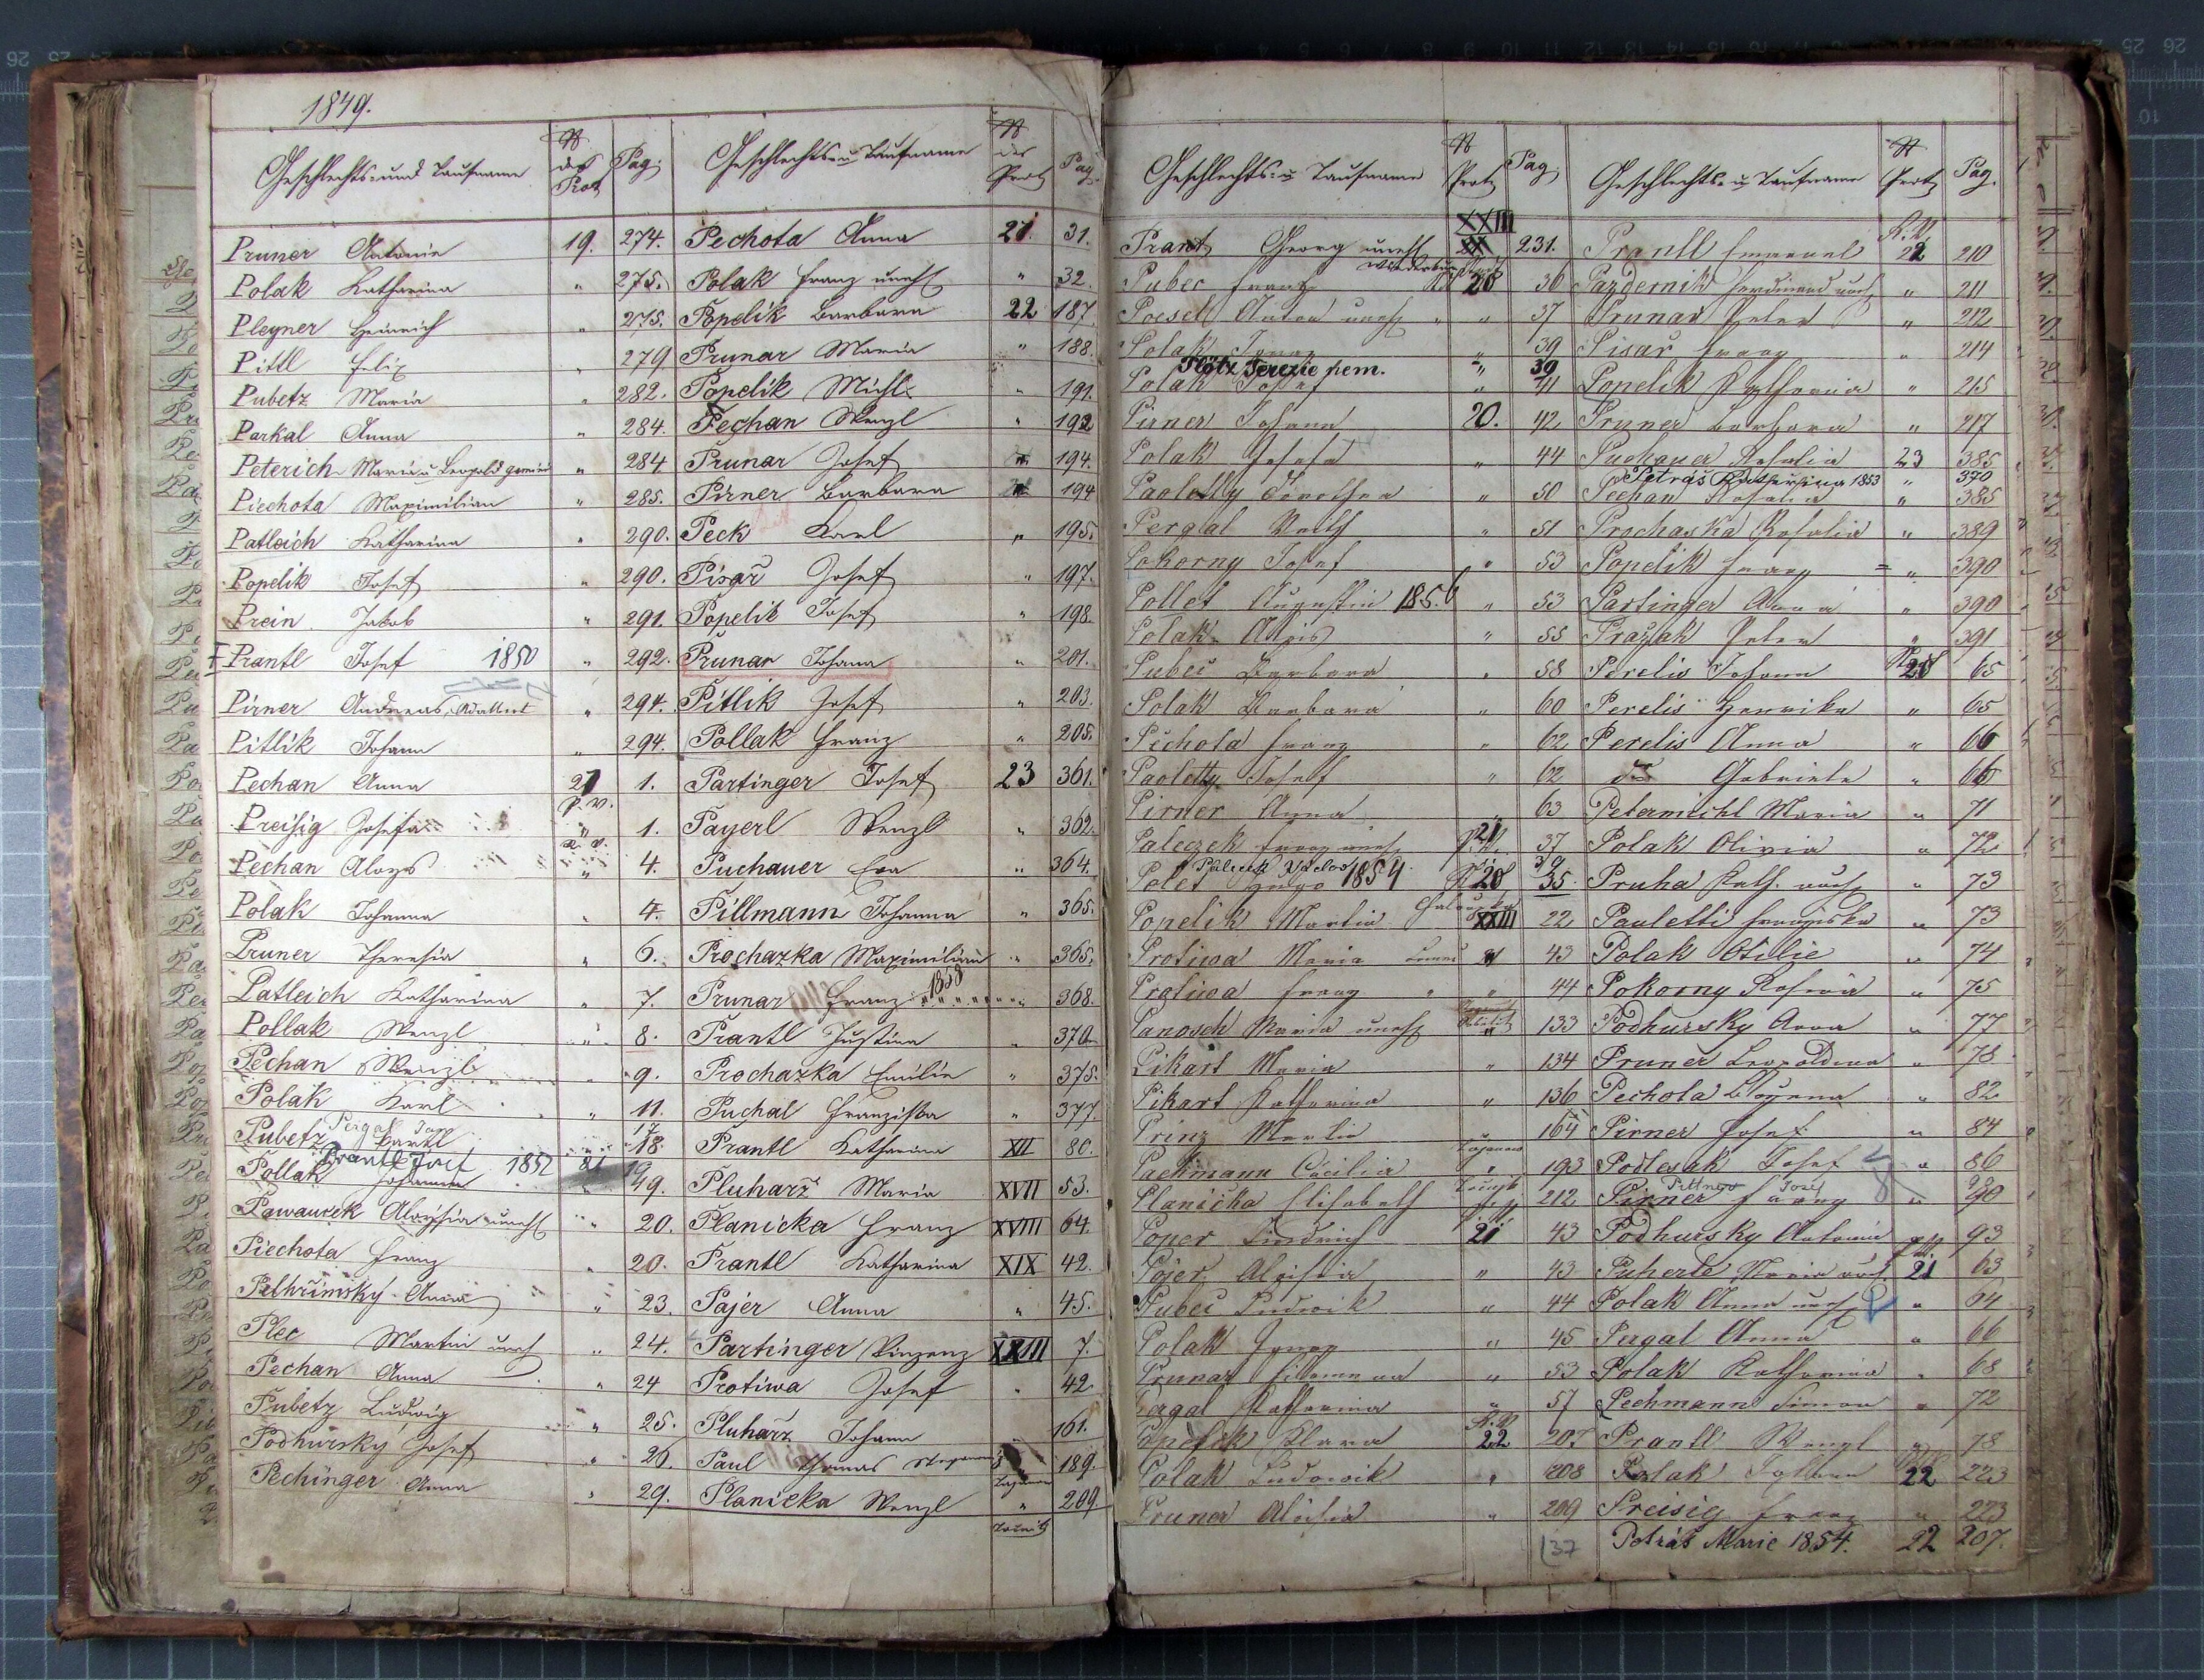 1849.
Geschlechts- und Taufname № des Prot Pag:
Pruner Antonie 19. 274.
Polak Katharina " 275.
Pleyner Heinrich " 275.
Pitll Felix " 279
Pubetz Maria " 282.
Parkal Anna " 284.
Peterich Maria u Leopold " 284
Piechota Maximilian " 285.
Patleich Katharina " 290.
Popelik Josef " 290.
Prein Jakob " 291.
Prantl Josef 1850 " 292.
Pirner Andreas, Adalbert " 294.
Pitlik Johann " 294.
Pechan Anna 21 1.
Preisig Josefa " 1.
Pechan Aloys " 4.
Polak Johanna " 4.
Pruner Theresia " 6.
Patleich Katharina " 7.
Pollak Wenzl " 8.
Pechan Wenzl " 9.
Polak Karl " 11.
Pergal Jan 17
Pubetz Bartl " 18.
Prantl Josef 1852 21 19
Pollak Johanna 19.
Pawaurek Aloysia unehl " 20.
Piechota Franz " 20.
Pelhřimsky Anna " 23.
Plec Martin uneh " 24.
Pechan Anna " 24
Pubetz Ludwig " 25.
Podhursky Josef " 26.
Pechinger Anna " 29.
Geschlechts- u Taufname № des Prot Pag.
Pechota Anna 21. 31.
Polak Franz unehl " 32.
Popelik Barbara 22 187.
Prunar Maria " 188.
Popelik Michl " 191.
Pechan Wenzl " 192
Prunar Josef 194.
Pirner Barbara 194
Peck Karl " 195.
Pisař Josef " 197.
Popelik Josef " 198.
Prunar Johana " 201.
Pitlik Josef " 203.
Pollak Franz " 205.
Partinger Josef 23 361.
Payerl Wenzl " 362.
Puchauer Eva " 364.
Pillmann Johanna " 365.
Prochazka Maximilian " 365.
Prunar Franz 1858 " 368.
Prantl Justina " 370
Prochazka Emilie " 375.
Puchal Franziska " 377.
Prantl Katharina XII 80.
Pluharz Maria XVII 53.
Planicka Franz XVIII 64.
Prantl Katharina XIX 42.
Pajer Anna " 45.
Partinger Vinzenz XXIII 7.
Protiwa Josef " 42.
Pluharz Johann 161.
Paul Thomas 189.
Planicka Wenzl " 209.
Geschlechts- u Taufname № Prot Pag;
Prant Georg unehl XXIII 231.
Pubec Franz 20 36
Poesel Anton unehl " 37
Polak Ignaz " 39
Plötz Terezie nem. " 39
Polak Josef " 41
Pirner Johann 20. 42
Polak Josefa " 44
Paoletty Dorothea " 50
Pergal Veith " 51
Pokorny Josef " 53
Pollet Augustin 1856 " 53
Polak Alois " 55
Pubec Barbara " 58
Polak Barbara " 60
Pechota Franz " 62
Paoletty Josef " 62
Pirner Anna " 63
Paleczek Franz unehl 21 37
Páleček Václav 1854
Polet Hugo 20 35
Popelik Martin XXIII 22
Protiwa Maria 43
Protiwa Franz " 44
Panosch Maria unehl " 133
Pikart Maria " 134
Pikart Katharina " 136
Prinz Martin " 164
Pachmann Cäcilia " 193
Planička Elisabeth 212
Poper Heinrich 21 43
Pojer Aloisia " 43
Pubec Ludwik " 44
Polak Ignaz " 45
Prunar Filomena " 53
Pergal Katharina " 57
Popelik Klara 22 207
Polak Ludowik " 208
Pruner Aloisia " 209
137
Geschlechts- u Taufname № Prot Pag.
Prantl Emanuel 22 210
Pazdernik Ferdinand uneh " 211
Prunar Peter " 212
Pisař Franz " 214
Popelik Katharina " 215
Pruner Barbara " 217
Puchauer Rosalia 23 385
Petráš Katharina 1853 " 370
Pechan Rosalia " 385
Prochaska Rosalia " 389
Popelik Franz " 390
Partinger Anna " 390
Pražak Peter " 391
Perelis Johann 20 65
Perelis Henrika " 65
Perelis Anna " 66
dto Gabriele " 66
Petermichl Maria " 71
Polak Olivia " 72
Pruha Kath. unehl " 73
Pauletti Franziska " 73
Polak Otilie " 74
Pokorny Rosina " 75
Podhursky Anna " 77
Pruner Leopoldina " 78
Pechota Bloyena " 82
Pirner Josef " 84
Podlesak Josef " 86
Pittner Josef 90
Pirner Franz " 90
Podhursky Antonie 93
Puherle Maria 21 63
Polak Anna unehl " 64
Pergal Anna " 66
Polak Katharina " 68
Pechmann Simon " 72
Prantl Wenzl " 78
Polak Johann 22 223
Preisig Franz " 223
Petráš Marie 1854. 22 207.